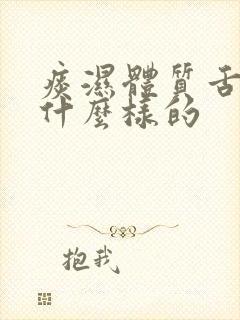 痰濕體質舌
什麼樣的
抱我